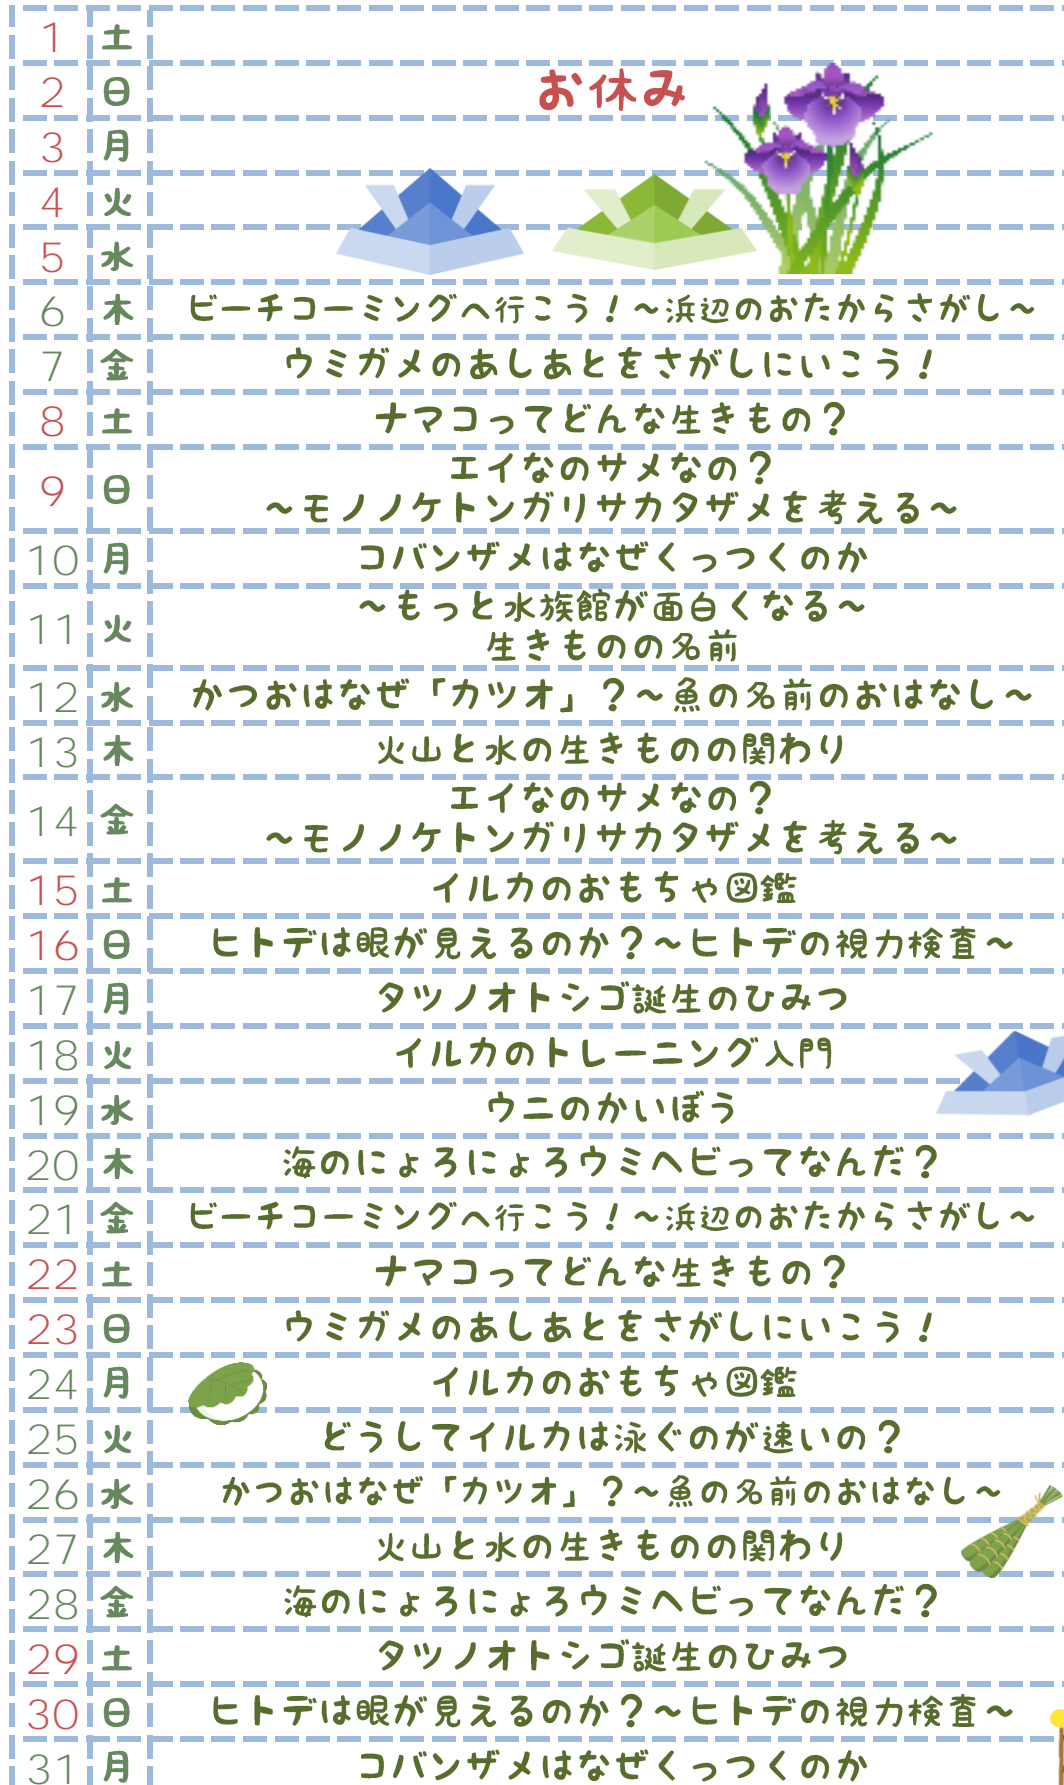 1 土
2 日 お休み
3 月
4 火
5 水
6 木 ビーチコーミングへ行こう！～浜辺のおたからさがし～
7 金 ウミガメのあしあとをさがしにいこう！
8 土 ナマコってどんな生きもの？
9 日 エイなのサメなの？
～モノノケトンガリサカタザメを考える～
10 月 コバンザメはなぜくっつくのか
11 火 ～もっと水族館が面白くなる～
生きものの名前
12 水 かつおはなぜ「カツオ」？～魚の名前のおはなし～
13 木 火山と水の生きものの関わり
14 金 エイなのサメなの？
～モノノケトンガリサカタザメを考える～
15 土 イルカのおもちゃ図鑑
16 日 ヒトデは眼が見えるのか？～ヒトデの視力検査～
17 月 タツノオトシゴ誕生のひみつ
18 火 イルカのトレーニング入門
19 水 ウニのかいぼう
20 木 海のにょろにょろウミヘビってなんだ？
21 金 ビーチコーミングへ行こう！～浜辺のおたからさがし～
22 土 ナマコってどんな生きもの？
23 日 ウミガメのあしあとをさがしにいこう！
24 月 イルカのおもちゃ図鑑
25 火 どうしてイルカは泳ぐのが速いの？
26 水 かつおはなぜ「カツオ」？～魚の名前のおはなし～
27 木 火山と水の生きものの関わり
28 金 海のにょろにょろウミヘビってなんだ？
29 土 タツノオトシゴ誕生のひみつ
30 日 ヒトデは眼が見えるのか？～ヒトデの視力検査～
31 月 コバンザメはなぜくっつくのか